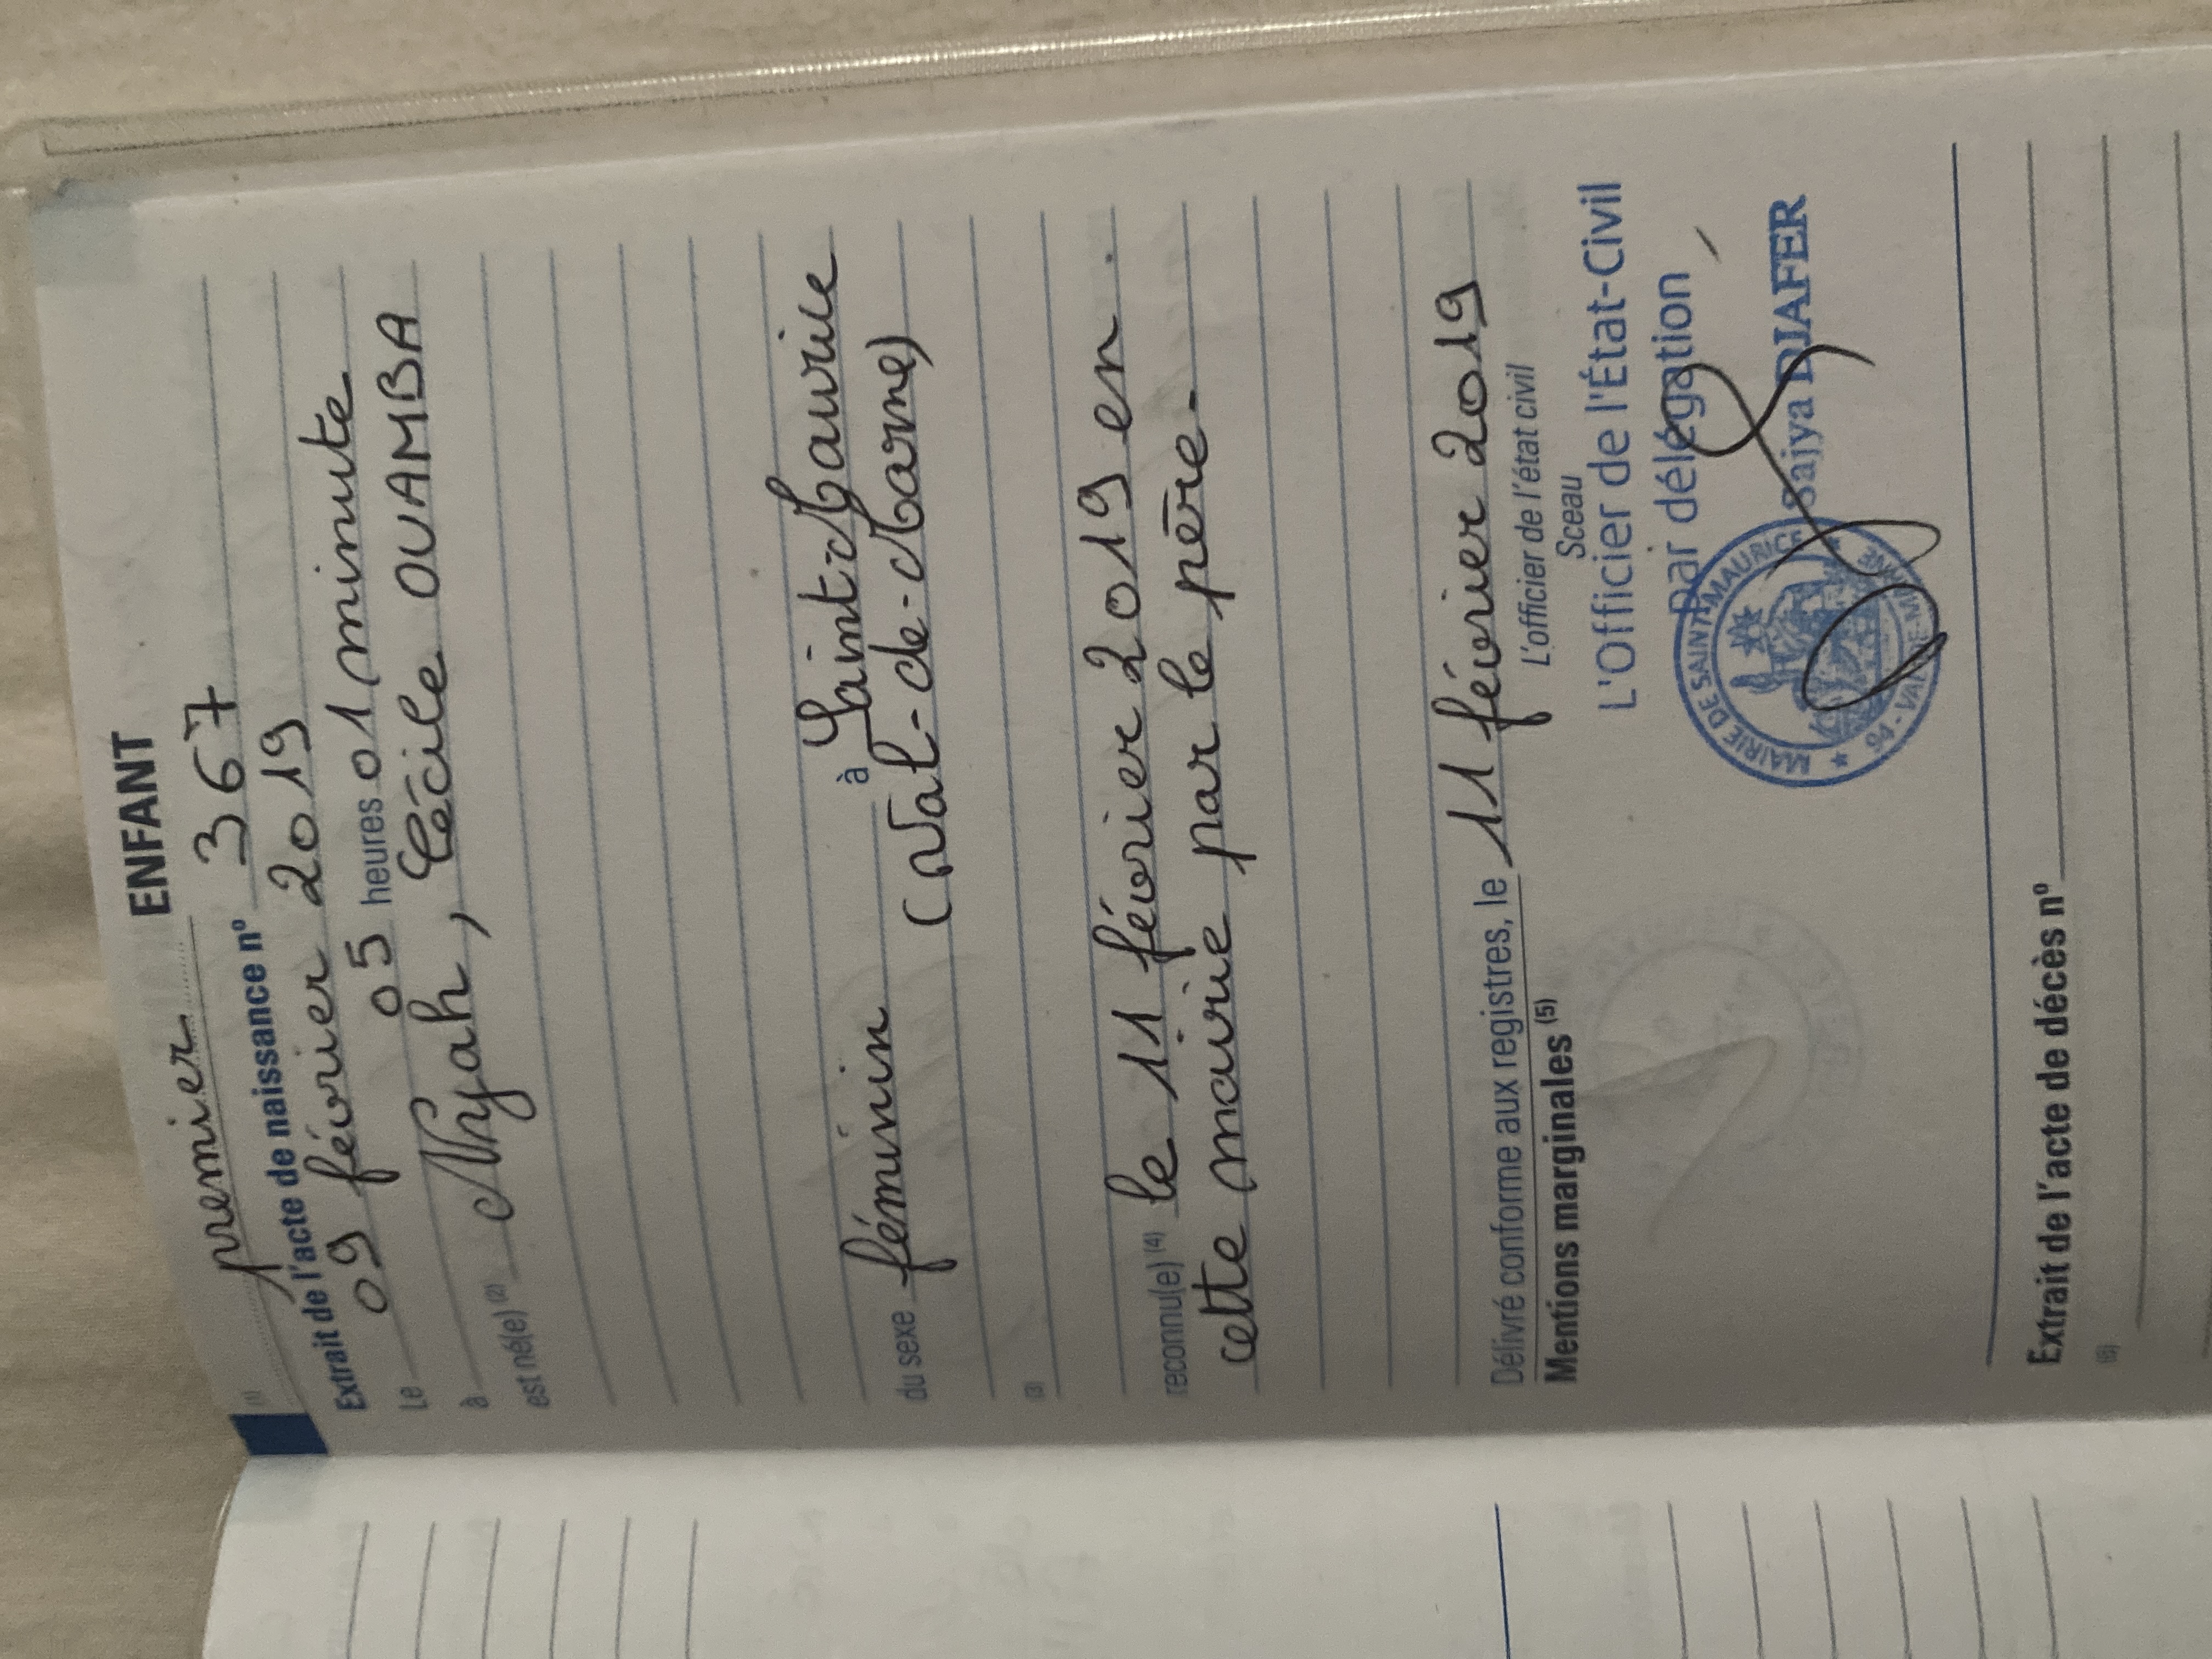 (1) premier ENFANT
Extrait de l'acte de naissance nº 367
Le 09 février 2019
à 05 heures 01 minute
est né(e) (2) Nyah, Cécile OUAMBA
du sexe féminin à Saint-Maurice
(Val-de-Marne)
(3)
reconnu(e) (4) le 11 février 2019 en
cette mairie par le père.
Délivré conforme aux registres, le 11 février 2019
Mentions marginales (5)
L'officier de l'état civil
Sceau
L'Officier de l'État-Civil
par délégation
Sajya DIAFER
MAIRIE DE SAINT-MAURICE
94 - VAL-DE-MARNE
Extrait de l'acte de décès nº
(6)